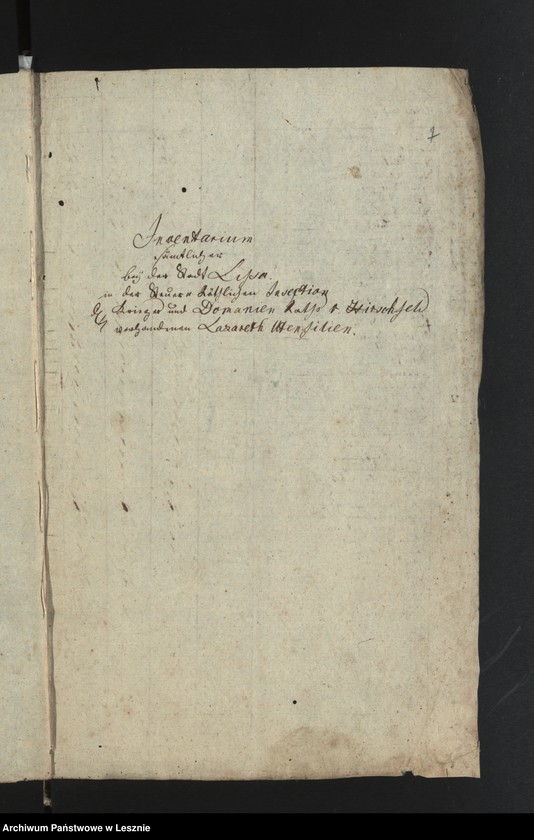 1
Inventarium
sämtlicher
bey der Stadt Lissa
in der Steuer Räthlichen Inspection
Krieges und Domainen Raths v Hirschfeld
vorhandenen Lazareth Utensilien.
Archiwum Państwowe w Lesznie